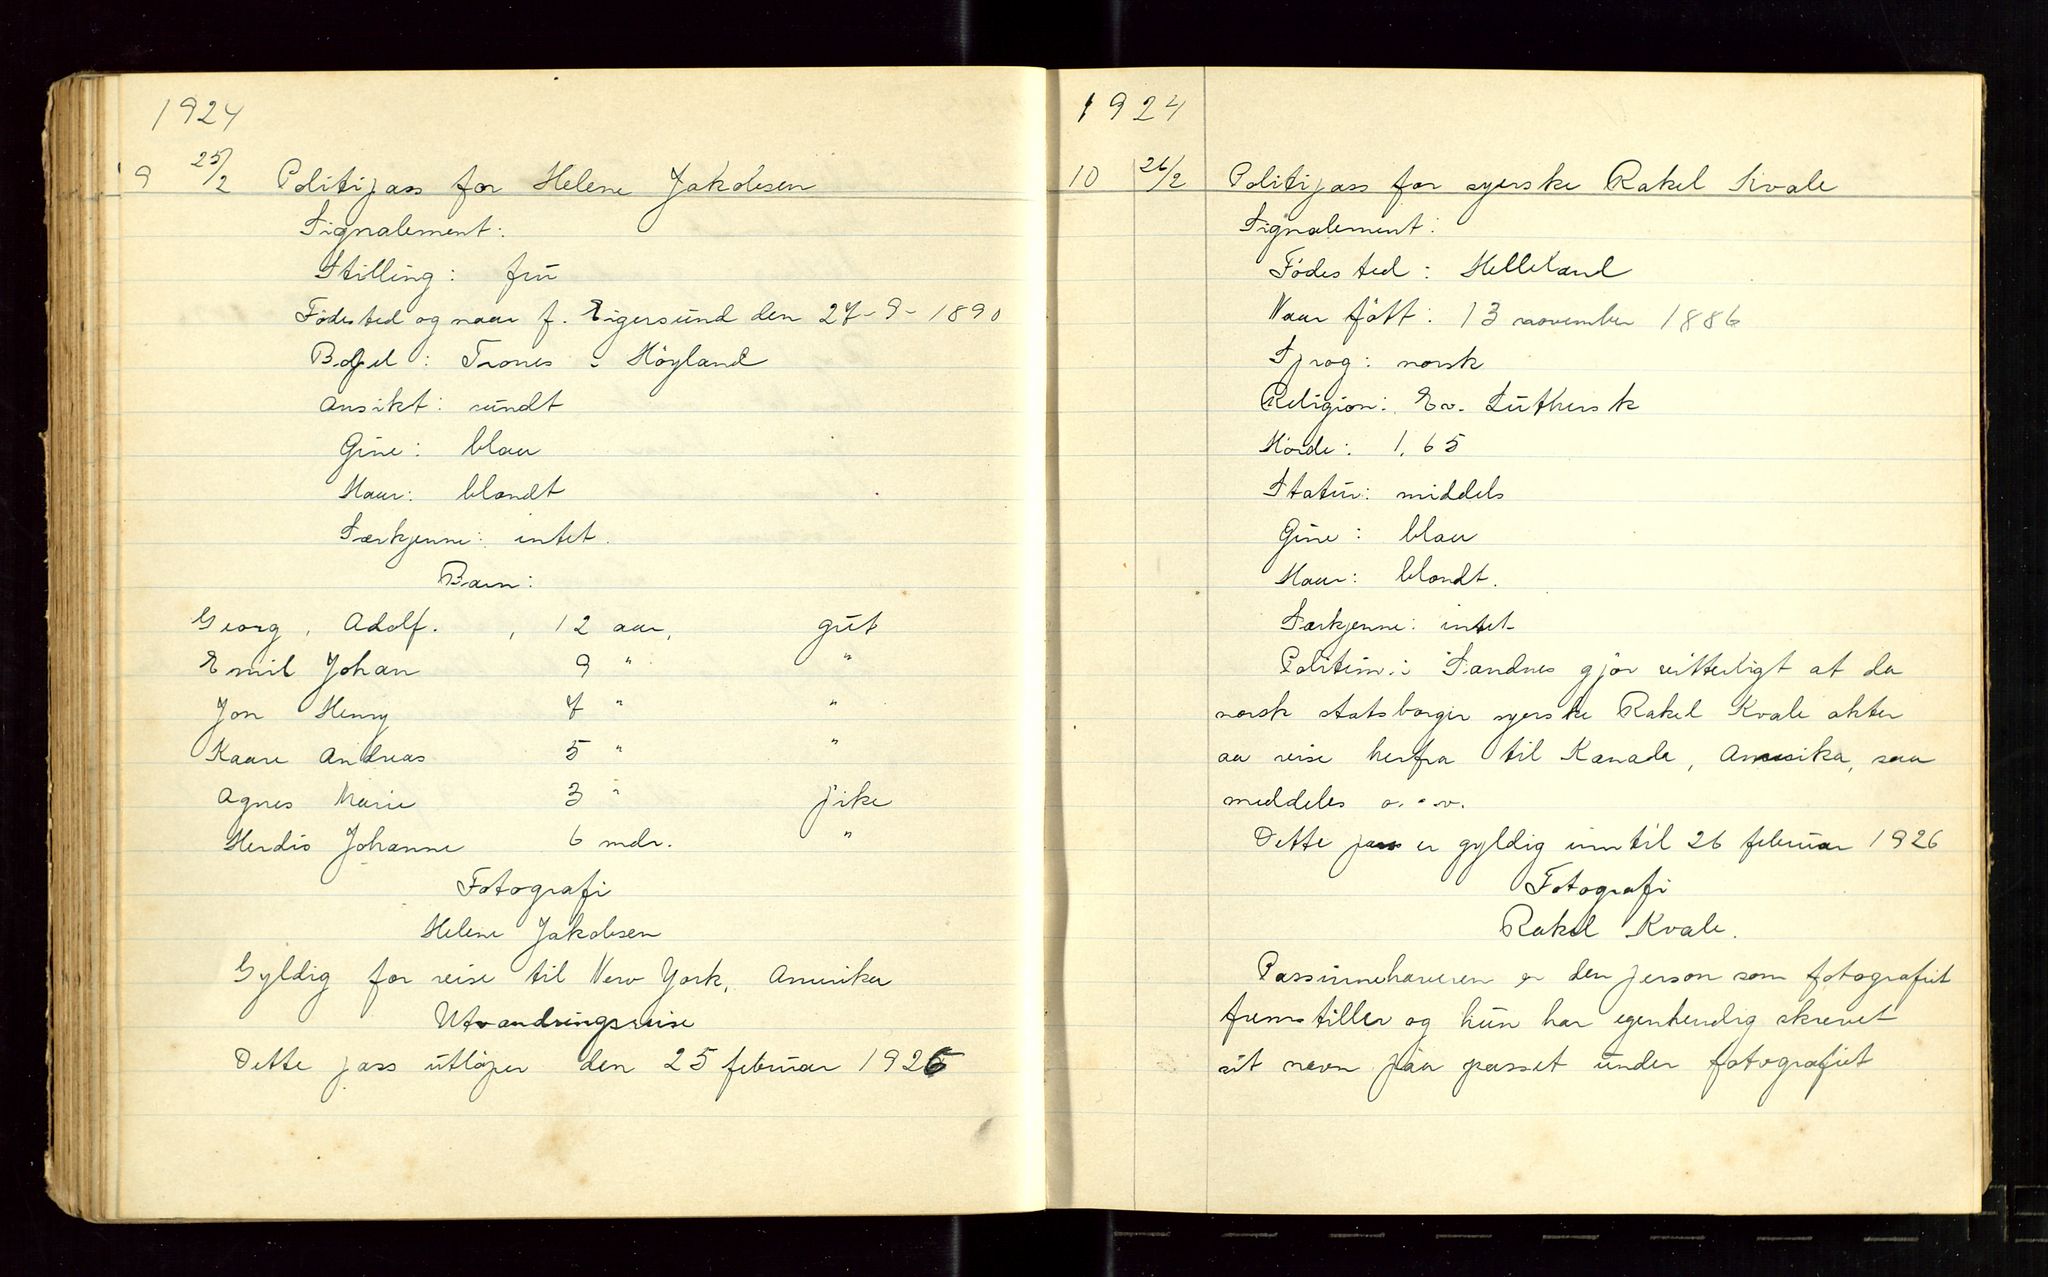 1924
9 25/2 Politipass for Helene Jakobsen
Signalement:
Stilling: fru
Fødested og naar f. Eigersund den 27-9-1890
Bopel: Trones i Höyland
Ansikt: rundt
Öine: blaa
Haar: blondt
Særkjenne: intet.
Barn:
Georg, Adolf. , 12 aar, gut
Emil Johan 9 " "
Jon Henry 7 " "
Kaare Andreas 5 " "
Agnes Marie 3 " pike
Herdis Johanne 6 mdr. "
Fotografi
Helene Jakobsen
Gyldig for reise til New York, Amerika
Utvandringsreise
Dette pass utløper den 25 februar 1926
1924
10 26/2 Politipass for syerske Rakel Kvale
Signalement:
Födested: Helleland
Naar född: 13 november 1886
Sprog: norsk
Religion: Ev. Luthersk
Höide: 1.65
Statur: middels
Öine: blaa
Haar: blondt.
Særkjenne: intet
Politim. i Sandnes gjør vitterligt at da
norsk statsborger syerske Rakel Kvale akter
aa reise herfra til Kanada, Amerika, saa
meddeles o. s. v.
Dette pass er gyldig inntil 26 februar 1926
Fotografi
Rakel Kvale.
Passinnehaveren er den person som fotografiet
fremstiller og hun har egenhendig skrevet
sit navn paa passet under fotografiet